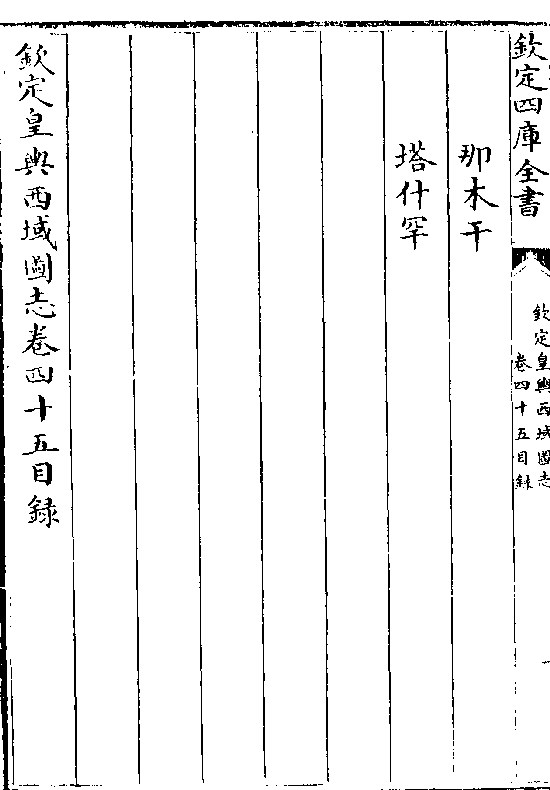 欽定四庫全書
欽定皇輿西域圖志
卷四十五目録
那木干
塔什罕
欽定皇輿西域圖志卷四十五目録